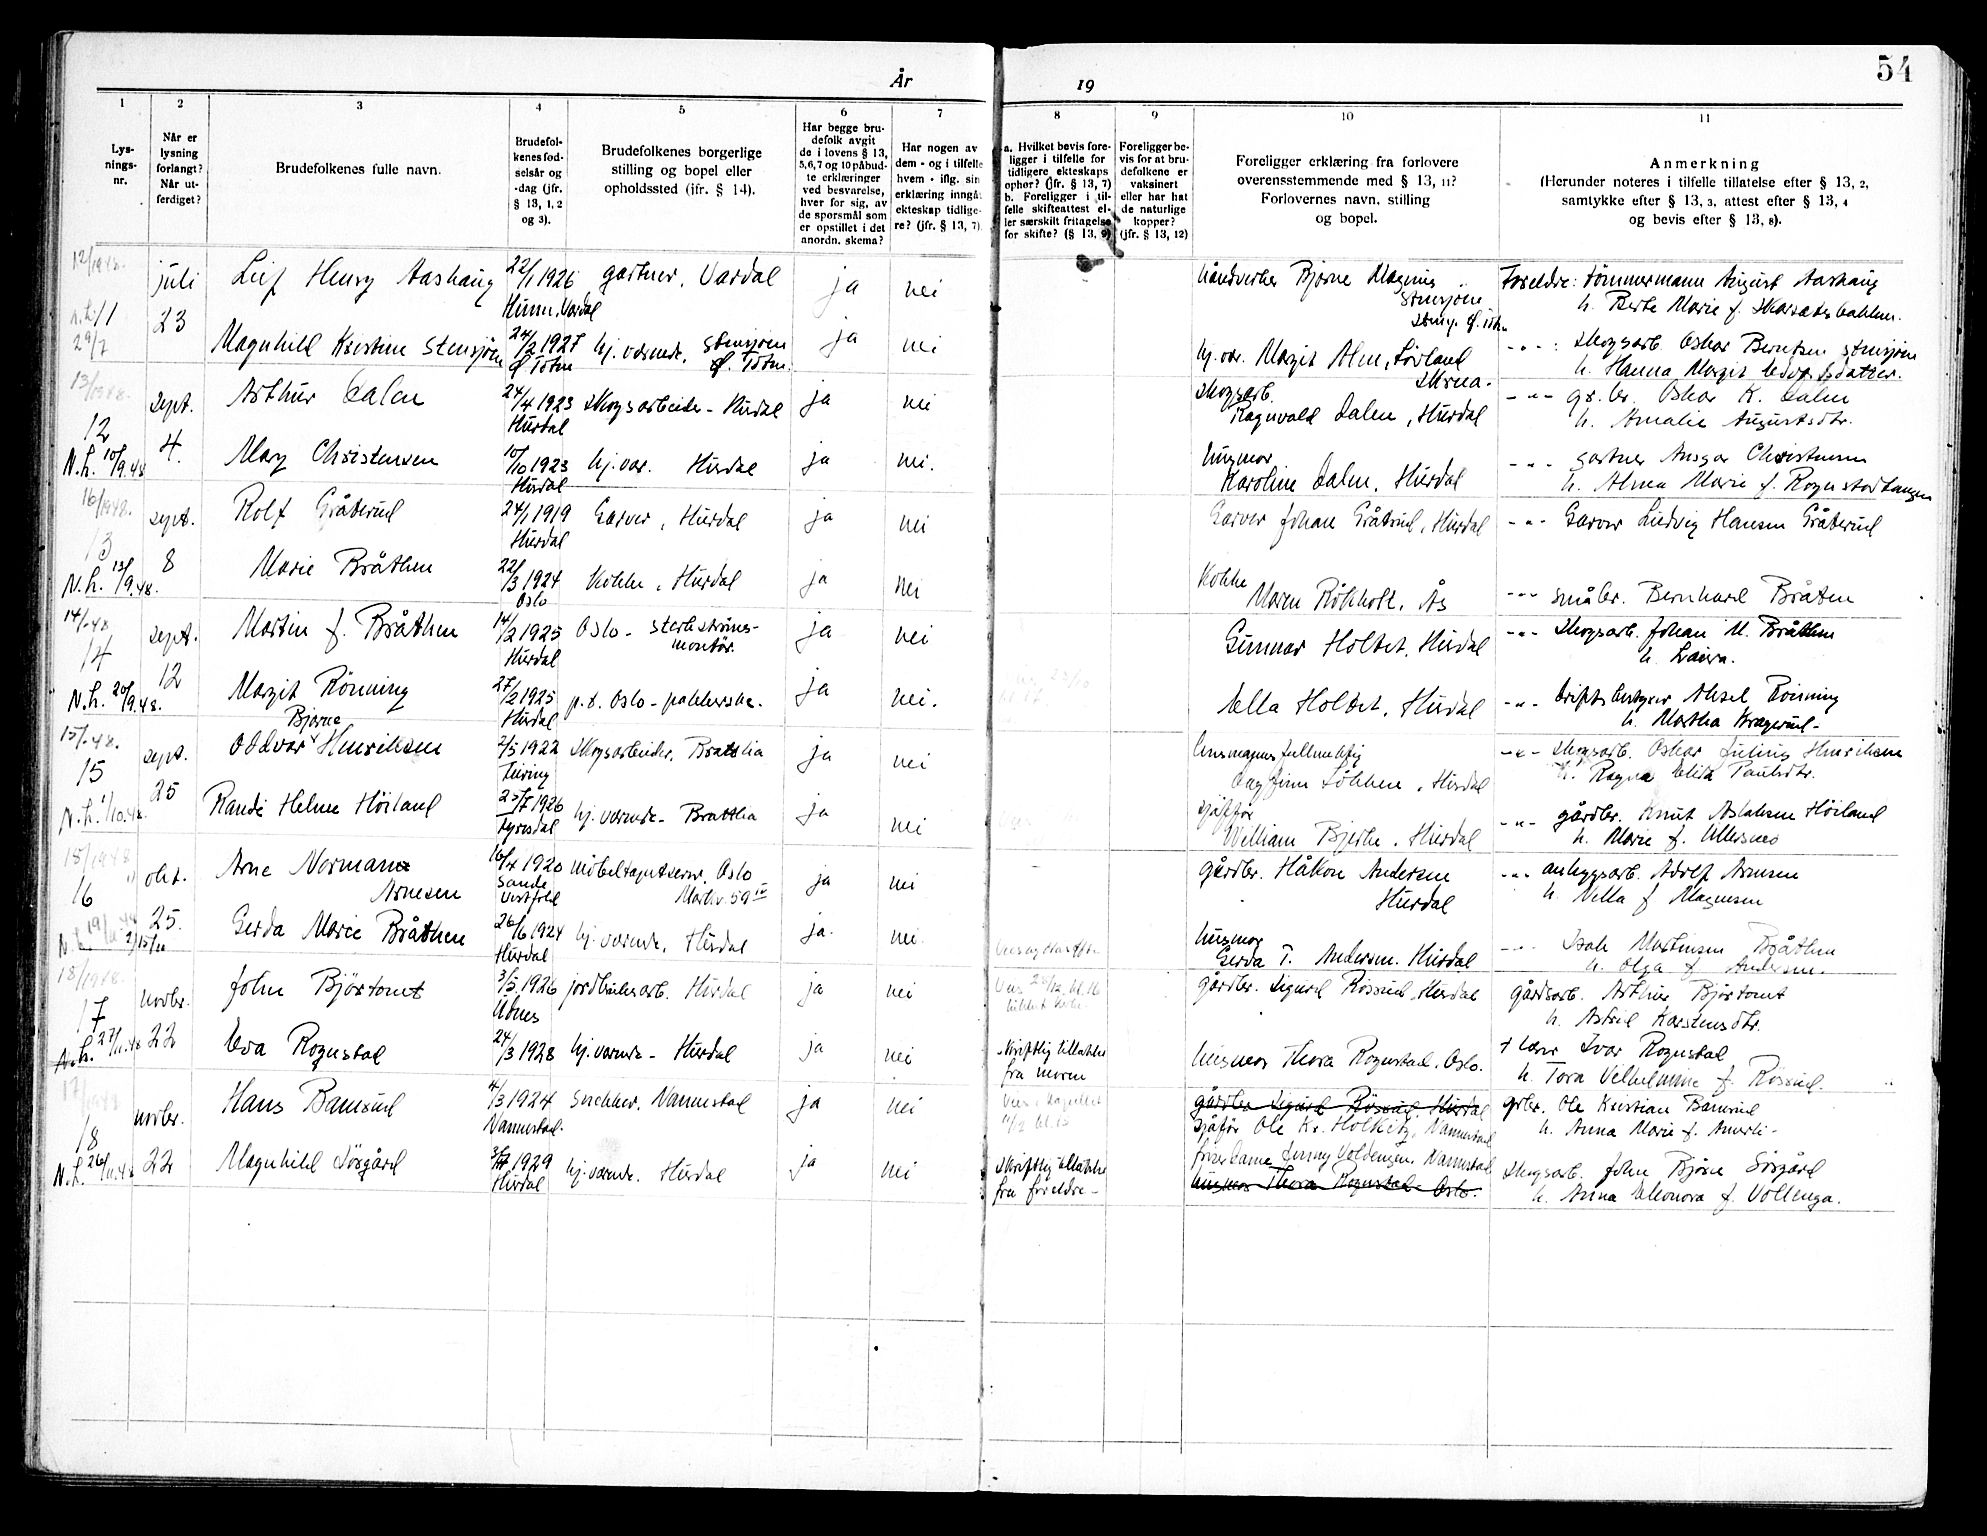 54
År 19
1 2 3 4 5 6 7 8 9 10 11
Lys-
nings-
nr.
Når er
lysning
forlangt?
Når ut-
ferdiget?
Brudefolkenes fulle navn.
Brudefol-
kenes fød-
selsår og
-dag (jfr.
§ 13, 1, 2
og 3).
Brudefolkenes borgerlige
stilling og bopel eller
opholdssted (ifr. § 14).
Har begge bru-
defolk avgit
de i lovens § 13,
5,6,7 og 10 påbud-
te erklæringer
ved besvarelse,
hver for sig, av
de spørsmål som
er opstillet i det
anordn. skema?
Har nogen av
dem - og i tilfelle
hvem - iflg. sin
erklæring inngå
ekteskap tidlige-
re? (jfr. § 13, 7)
a. Hvilket bevis fore-
ligger i tilfelle for
tidligere ekteskaps
ophør? (jfr. § 13, 7)
b. Foreligger i til-
felle skifteattest el-
ler særskilt fritagelse
for skifte? (§ 13, 9)
Foreligger be-
vis for at bru-
defolkene er
vaksinert
eller har hat
de naturlige
kopper?
(jfr. § 13, 12)
Foreligger erklæring fra forlovere
overensstemmende med § 13, 11?
Forlovernes navn, stilling
og bopel.
Anmerkning
(Herunder noteres i tilfelle tillatelse efter § 13, 2,
samtykke efter § 13, 3, attest efter § 13, 4
og bevis efter § 13, 8).
12/1948.
11 juli 23 Leif Henry Aashaug 22/1 1926 gartner, Vardal ja nei
Hunn, Vardal
29/7 Magnhild Kristine Stensjøen 24/2 1927 hj. værende, Stensjøen ja nei
Ø Toten Ø. Toten.
håndverker Bjarne Magnus
Stensjøen
hj. vær. Margit Alm, Løvland
Skreia.
Foreldre: tømmermann August Aashaug
h. Berte Marie f.
- " - : skogsarb. Oskar Berntsen Stensjøen
h. Hanna Margit
13/1948.
12 sept. 4. Arthur Dalen 24/4 1923 skogsarbeider - Hurdal ja nei
Hurdal
N.h. 10/9.48 Mary Christensen 10/10 1923 hj. vær. Hurdal ja nei.
Hurdal
skogsarb.
Ragnvald Dalen, Hurdal
husmor
Karoline Dalen, Hurdal
- " - gr.br. Oskar K. Dalen
h. Amalie Augustsdtr.
- " - gartner Ansgar Christensen
h. Alma Marie f. Rognstadhaugen
16/1948.
13 sept. 8 Rolf Gråterud 24/1 1919 Garver, Hurdal ja nei
Hurdal
N.h. 13/9.48. Marie Bråthen 22/3 1924 Kokke, Hurdal ja nei
Oslo
Garver Johan Gråterud, Hurdal
Kokke
Maren Rökholt, Ås
- " - Garver Ludvig Hansen Gråterud
- " - småbr. Bernhard Bråten
14/-48
14 sept. 12 Martin J. Bråthen 14/2 1925 Oslo - sterkstrøms- ja nei
Hurdal montør.
N.h. 20/9.48. Margit Rönning 27/2 1925 p.t. Oslo - pakkerske. ja nei.
Hurdal
Gunnar Holtet, Hurdal
Ella Holtet, Hurdal
- " - skogsarb. Johan M. Bråthen
h. Laura.
- " - driftsbestyrer Aksel Rönning
h. Martha Kragerud -
15/-48.
15 sept. 25 Bjarne
Oddvar Henriksen 2/5 1922 Skogsarbeider, Brattlia ja nei
Feiring
N.h. 1/10.48. Randi Helene Höiland 23/7 1926 hj. værende - Brattlia ja nei
Fyresdal
lensmannsfullmektig
Dagfinn Lökken, Hurdal
sjåfør
William Bjerke, Hurdal
- " - skogsarb. Oskar Julius Henriksen
h. Ragna Elida Paulsdtr.
- " - gårdbr. Knut Aslaksen Höiland
h. Marie f.
15/1948
16 okt. 25. Arne Normann 16/4 1920 møbeltapetserer, Oslo ja nei
Arnesen Sande
Vestfold
Gerda Marie Bråthen 26/6 1924 hj. værende, Hurdal ja. nei.
Hurdal
gårdbr. Håkon Andersen
Hurdal
husmor
Gerda T. Andersen, Hurdal
- " - anleggsarb. Adolf Arnesen
h. Vella f. Magnesen
- " - Isak Martinsen Bråthen
h. Olga f. Andersen.
18/1948.
17 novbr. 22 John Björtomt 3/5 1926 jordbruksarb. Hurdal ja nei
Udnes
N.h. 27/11.48 Eva Rognstad 24/3 1928 hj. værende - Hurdal ja nei
skriftlig tillatelse
fra moren
gårdbr. Sigurd Røssud, Hurdal
husmor Thora Rognstad, Oslo.
gårdsarb. Arthur Björtomt
h. Astrid Karstensdtr.
Ivar Rognstad
h. Tora Vilhelmine f. Røssud.
17/1948
18 novbr. 22 Hans Bamrud 4/3 1924 Snekker, Nannestad ja nei
Nannestad.
N.h. 26/11.48 Magnhild Sörgård 1929 hj. værende, Hurdal ja nei
Hurdal
skriftlig tillatelse
fra foreldre -
gårdbr. Sigurd Røssud, Hurdal
sjåfør Ole Kr. Nannestad
Jenny Voldengen, Nannestad
husmor Thora Rognstad - Oslo.
grbr. Ole Kristian Bamrud
h. Anna Marie f.
skogsarb. John Bjarne Sörgård
h. Anna Eleonora f. Vollenga.